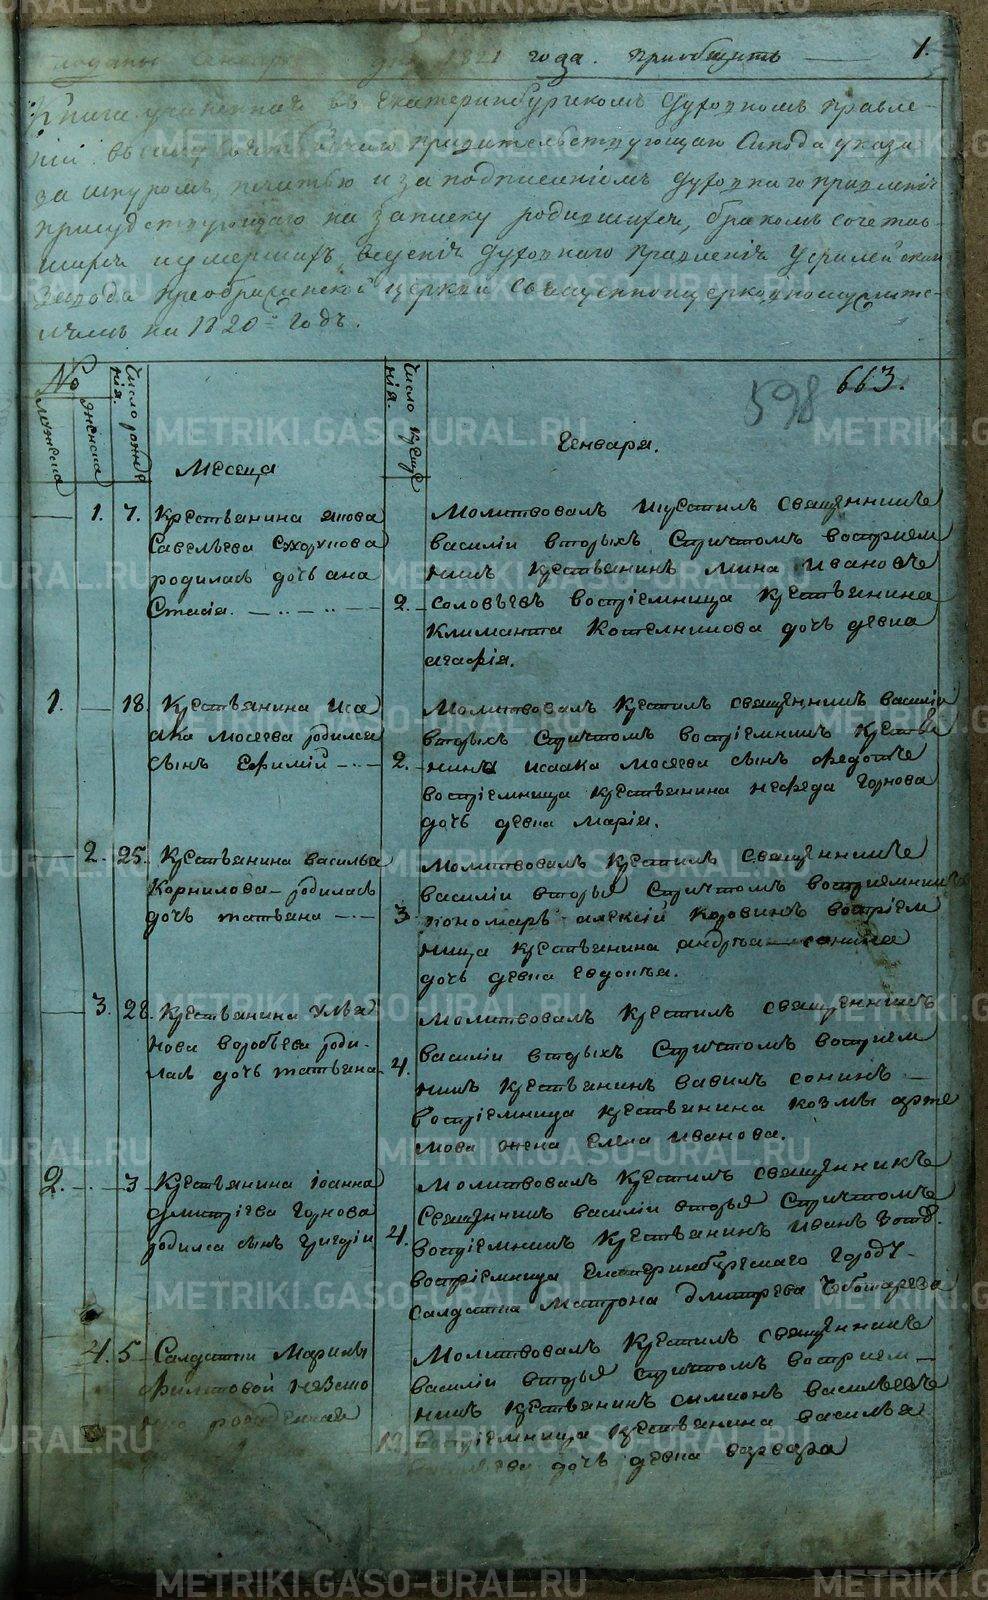 1821 года. Приобщить 1.
Книга учиненная въ Екатеринбургскомъ Духовномъ Правле-
нiи въ силу Святейшаго Правительствующаго Синода указа
за шнуромъ печатью и за подписанiемъ Духовнаго правленiя
присудствующаго на записку родившихся, бракомъ сочетав-
шихся и умершихъ веденiя Духовнаго Правленiя
завода Преображенской церкви священноцерковнослужите-
лямъ на 1820й Годъ.
№ мужеска женска
Число рожде нiя.
Месяца
Число креще нiя.
598 663.
Генваря.
1. 7. Крестьянина якова
Савельева Сухорукова
родилась дочь ана
Стасiя.
2.
Молитвовалъ крестилъ священникъ
василiи вторыхъ Спричтомъ восприем
никъ крестьянинъ мина ивановъ
соловьевъ вострiемница крестьянина
Климанта Котелникова дочь девка
агафiя.
1. 18. Крестьянина иса
ака мосеева родился
сынъ Ефимiй
2.
Молитвовалъ крестилъ священникъ василiи
вторыхъ Спричтомъ вострiемникъ крестья
нина исаака мосеева сынъ федотъ
востриемница крестьянина нефеда Горнова
дочь девка Марiя.
2. 25. Крестьянина василья
Корнилова родилась
дочь татьяна
3.
Молитвовалъ крестилъ священникъ
василiи вторыя Спричтомъ восприемникъ
пономарь алексiй Коровинъ вострiем
ница крестьянина андрея сонина
дочь девка евдокья.
3. 28. Крестьянина улья
нова воробьева роди-
лась дочь татьяна
4.
Молитвовалъ крестилъ священникъ
василiи вторыхъ Спричтомъ вострием
никъ крестьянинъ вавилъ сонинъ
вострiемница крестьянина козмы арте
мова жена елена иванова.
2. 3 Крестьянина iоанна
дмитрiева Горнова
родился сынъ григорiи
4.
Молитвовалъ крестилъ священникъ
Священникъ василiи вторыя Спричтомъ
вострiемникъ крестьянинъ иванъ
вострiемница Екатеринбургскаго Городу-
салдатка Матрона Дмитрева Чеботарева
4. 5 Салдатки Марины
Филитовой незако
рожденная
Молитвовалъ крестилъ священникъ
василiи вторыя Спричтомъ восприем-
никъ крестьянинъ симионъ васильевъ
вострiемница крестьянина василья
дочь девка варвара
METRIKI.GASO-URAL.RU